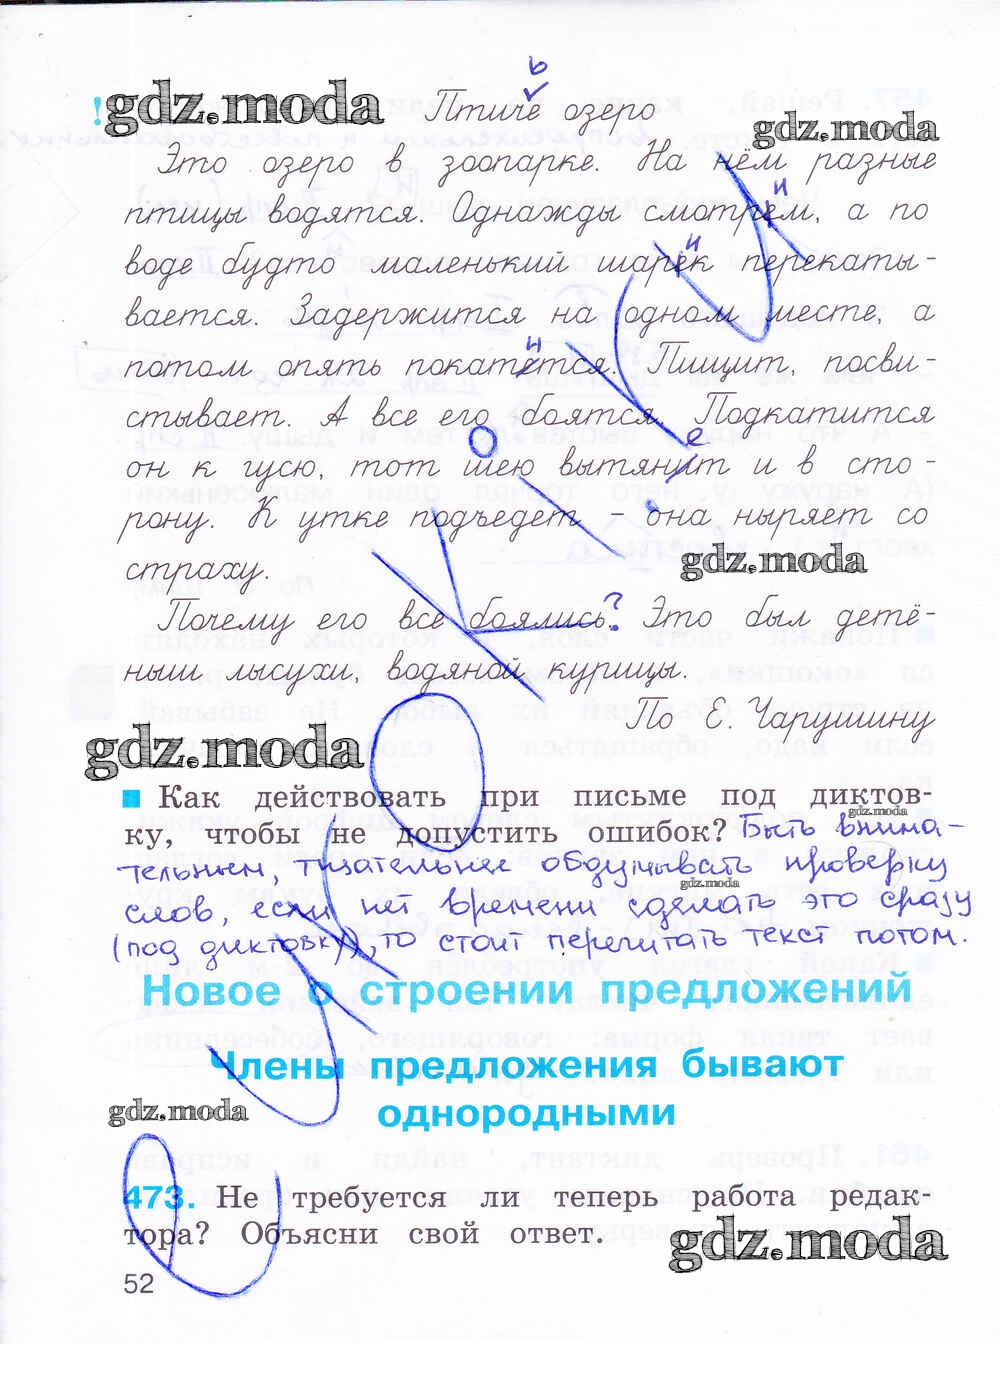 ь
! gdz.moda Птиче озеро gdz.moda
Это озеро в зоопарке. На нём разные
и
птицы водятся. Однажды смотрем, а по
и
воде будто маленький шарек перекаты-
вается. Задержится на одном месте, а
и
потом опять покатется. Пищит, посви-
стывает. А все его боятся. Подкатится
е
он к гусю, тот шею вытянит и в сто-
рону. К утке подъедет – она ныряет со
страху. gdz.moda
Почему его все боялись? Это был детё-
ныш лысухи, водяной курицы.
По Е. Чарушину
gdz.moda
Как действовать при письме под диктов-
gdz.moda
ку, чтобы не допустить ошибок? Быть внима-
тельнем, тщательнее обдумывать проверку
gdz.moda
слов, если нет времени сделать это сразу
(под диктовку), то стоит перечитать текст потом.
Новое о строении предложений
Члены предложения бывают
gdz.moda однородными
473. Не требуется ли теперь работа редак-
тора? Объясни свой ответ.
gdz.moda
52